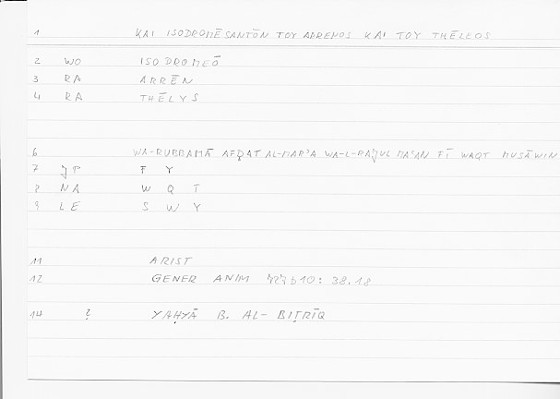 1 KAI ISODROMĒSANTŌN TOY ARRENOS KAI TOY THĒLEOS
2 WO ISODROMEŌ
3 RA ARRĒN
4 RA THĒLYS
6 WA-RUBBAMĀ AFḌAT AL-MARʾA WA-L-RAǦUL MAʿAN FĪ WAQT MUSĀWIN
7 F Y
8 NA W Q T
9 LE S W Y
11 ARIST
12 GENER ANIM b10: 38.18
14 YAḤYĀ B. AL-BIṬRĪQ